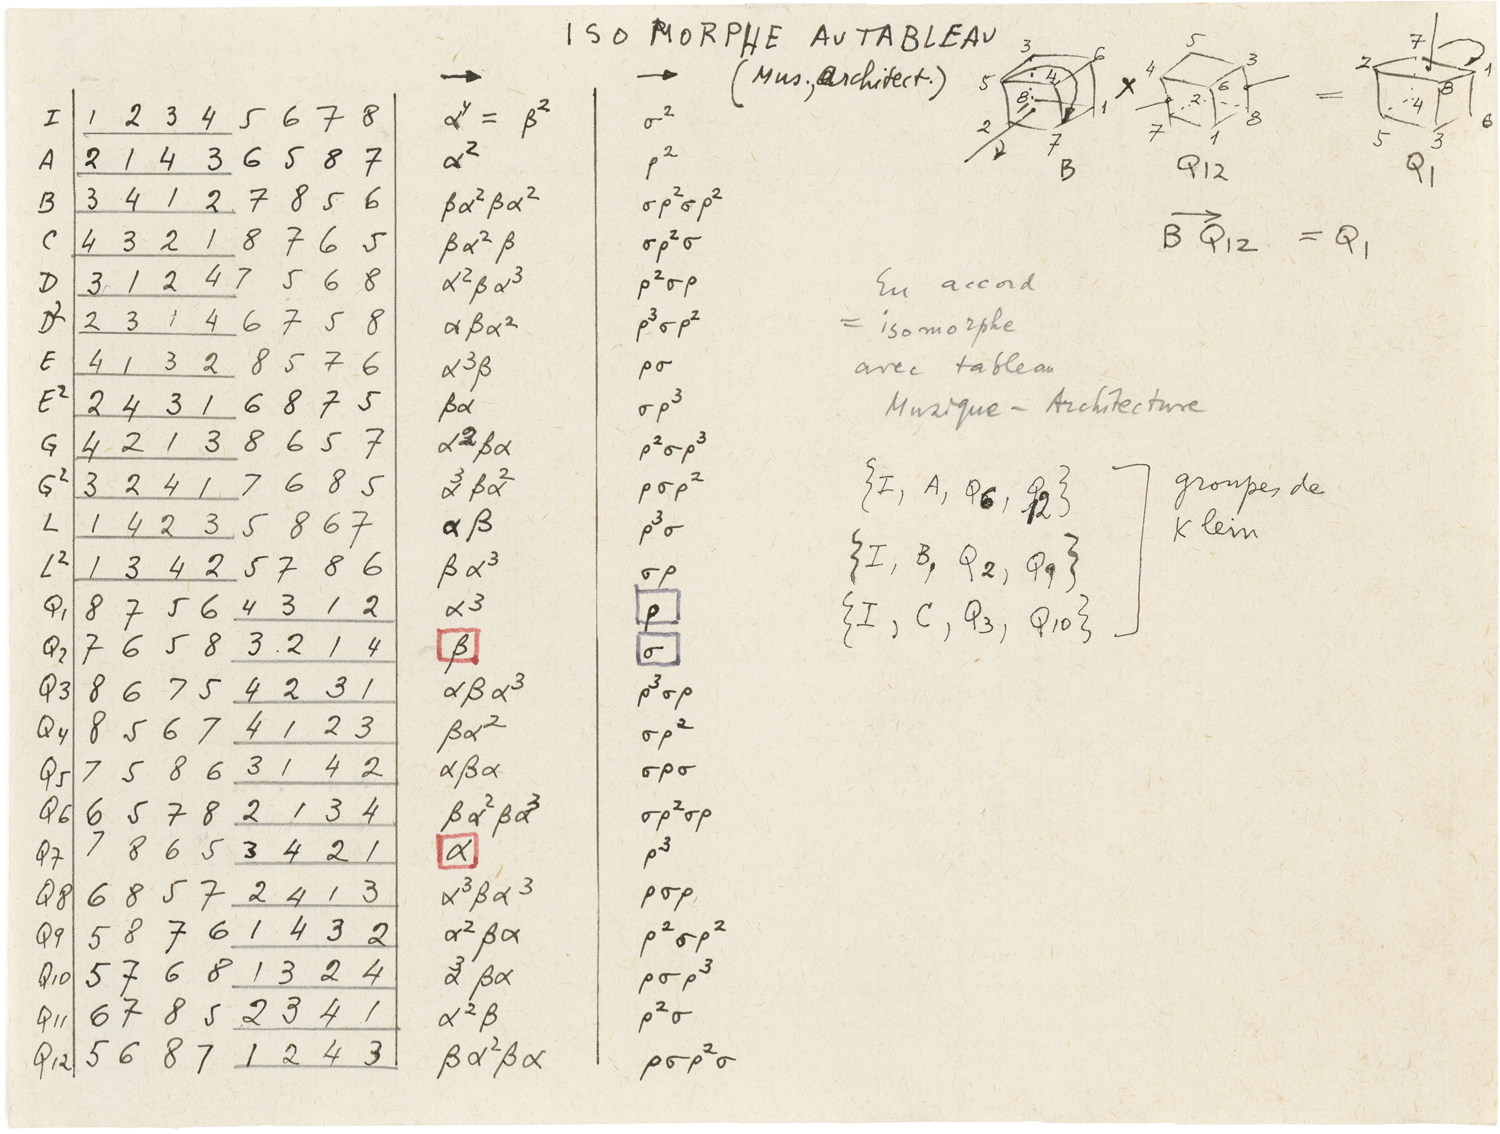 ISOMORPHE AU TABLEAU
(Mus., architect.)
→ →
I 1 2 3 4 5 6 7 8 α⁴ = β² σ²
A 2 1 4 3 6 5 8 7 α² ρ²
B 3 4 1 2 7 8 5 6 βα²βα² σρ²σρ²
C 4 3 2 1 8 7 6 5 βα²β σρ²σ
D 3 1 2 4 7 5 6 8 α²βα³ ρ²σρ
D² 2 3 1 4 6 7 5 8 αβα² ρ³σρ²
E 4 1 3 2 8 5 7 6 α³β ρσ
E² 2 4 3 1 6 8 7 5 βα σρ³
G 4 2 1 3 8 6 5 7 α²βα ρ²σρ³
G² 3 2 4 1 7 6 8 5 α³βα² ρσρ²
L 1 4 2 3 5 8 6 7 αβ ρ³σ
L² 1 3 4 2 5 7 8 6 βα³ σρ
Q1 8 7 5 6 4 3 1 2 α³ ρ
Q2 7 6 5 8 3 2 1 4 β σ
Q3 8 6 7 5 4 2 3 1 αβα³ ρ³σρ
Q4 8 5 6 7 4 1 2 3 βα² σρ²
Q5 7 5 8 6 3 1 4 2 αβα σρσ
Q6 6 5 7 8 2 1 3 4 βα²βα³ σρ²σρ
Q7 7 8 6 5 3 4 2 1 α ρ³
Q8 6 8 5 7 2 4 1 3 α³βα³ ρσρ
Q9 5 8 7 6 1 4 3 2 α²βα ρ²σρ²
Q10 5 7 6 8 1 3 2 4 α³βα ρσρ³
Q11 6 7 8 5 2 3 4 1 α²β ρ²σ
Q12 5 6 8 7 1 2 4 3 βα²βα ρσρ²σ
3 6 5 4 8 1 2 7
B
×
5 4 3 6 2 7 1 8
Q12
=
7 2 1 8 4 5 3 6
Q1
B Q12 = Q1
En accord
= isomorphe
avec tableau
Muzique - Architecture
{I, A, Q6, Q12}
{I, B, Q2, Q9}
{I, C, Q3, Q10}
groupes de
Klein